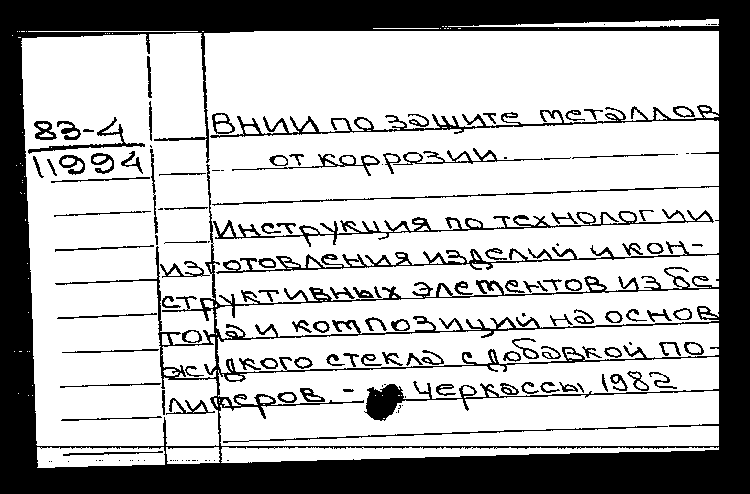 83-4
11994
ВНИИ по защите металлов
от коррозии.
Инструкция по технологии
изготовления изделий и кон-
структивных элементов из бе-
тона и композиций на основ
жидкого стекла с добавкой по-
лимеров. - Черкассы, 1982